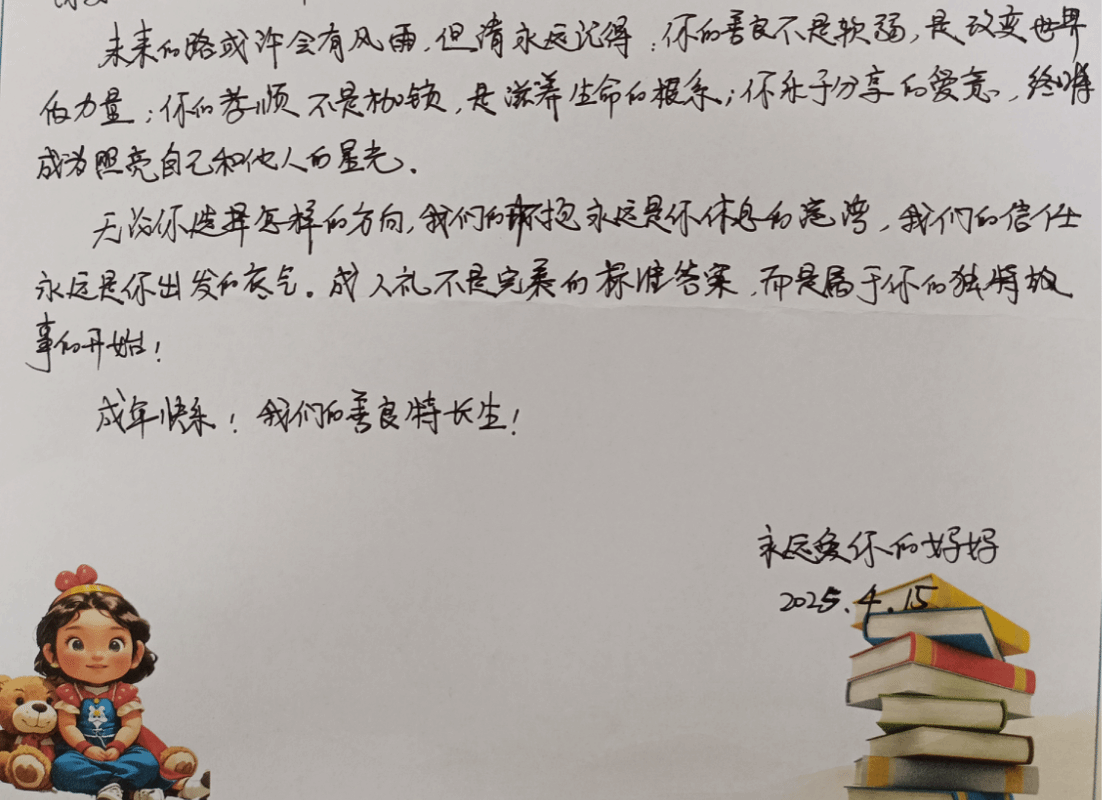 未来的路或许会有风雨,但请永远记得:你的善良不是软弱,是改变世界
的力量;你的孝顺不是枷锁,是滋养生命的根系;你乐于分享的爱意,终将
成为照亮自己和他人的星光。
无论你选择怎样的方向,我们的怀抱永远是你休息的港湾,我们的信任
永远是你出发的底气。成人礼不是完美的标准答案,而是属于你的独特故
事的开始!
成年快乐!我们的善良特长生!
永远爱你的好好
2025.4.15